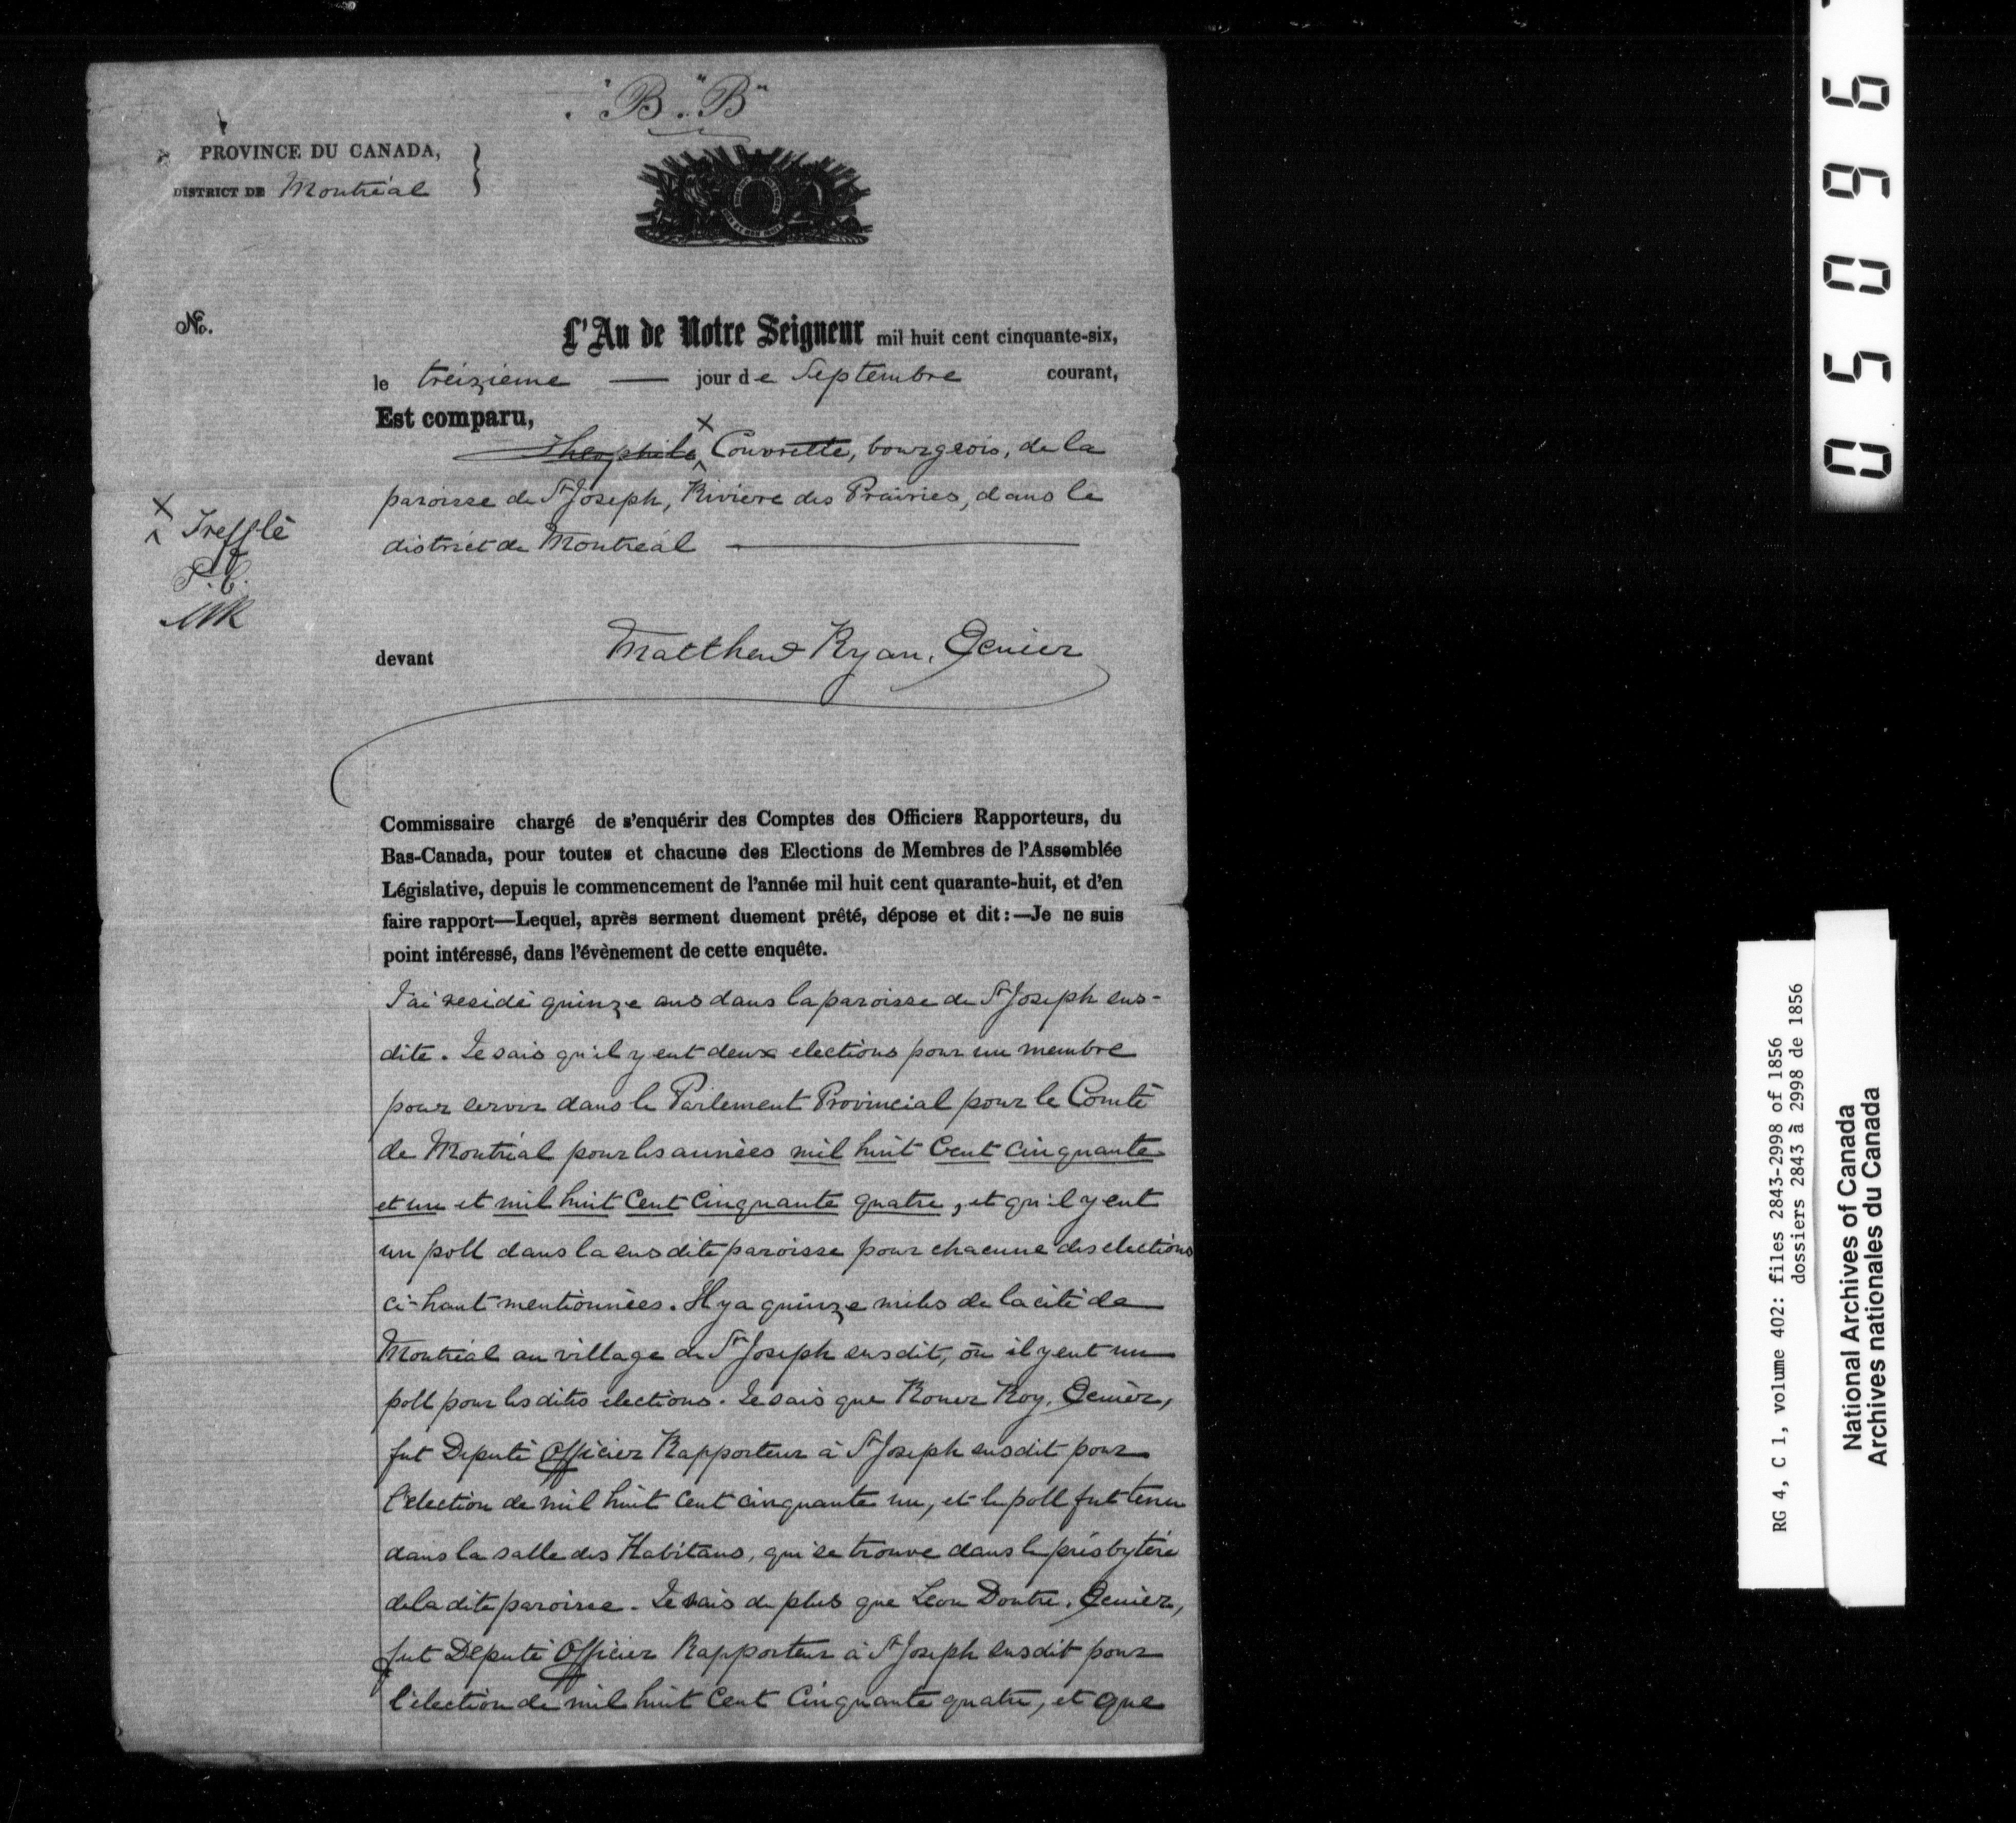 "B." "B"
PROVINCE DU CANADA,
DISTRICT DE Montréal
No.
L'An de Notre Seigneur mil huit cent cinquante-six,
le treizieme — jour de Septembre courant,
Est comparu,
Theophile Couvrette, bourgeois, de la
paroisse de St Joseph, Riviere des Prairies, dans le
district de Montréal
x Trefflé
T.C.
MR
devant Matthew Ryan, Ecuier
Commissaire chargé de s'enquérir des Comptes des Officiers Rapporteurs, du
Bas-Canada, pour toutes et chacune des Elections de Membres de l'Assemblée
Législative, depuis le commencement de l'année mil huit cent quarante-huit, et d'en
faire rapport—Lequel, après serment duement prêté, dépose et dit:—Je ne suis
point intéressé, dans l'évènement de cette enquête.
J'ai residé quinze ans dans la paroisse de St Joseph sus-
dite. Je sais qu'il y eut deux elections pour un membre
pour servir dans le Parlement Provincial pour le Comté
de Montréal pour les années mil huit Cent Cinquante
et un et mil huit Cent Cinquante quatre, et qu'il y eut
un poll dans la susdite paroisse pour chacune des elections
ci-haut mentionnées. Il y a quinze miles de la cité de
Montréal au village de St Joseph susdit, où il y eut un
poll pour les dites élections. Je sais que Rouer Roy, Ecuièr,
fut Deputé Officier Rapporteur à St Joseph susdit pour
l'election de mil huit Cent cinquante un, et le poll fut tenu
dans la salle des Habitans, qui se trouve dans le présbytère
de la dite paroisse. Je sais de plus que Leon Doutre, Ecuièr,
fut Députè Officier Rapporteur à St Joseph susdit pour
l'élection de mil huit Cent Cinquante quatre, et que
05096
RG 4, C 1, volume 402: files 2843-2998 of 1856
dossiers 2843 à 2998 de 1856
National Archives of Canada
Archives nationales du Canada